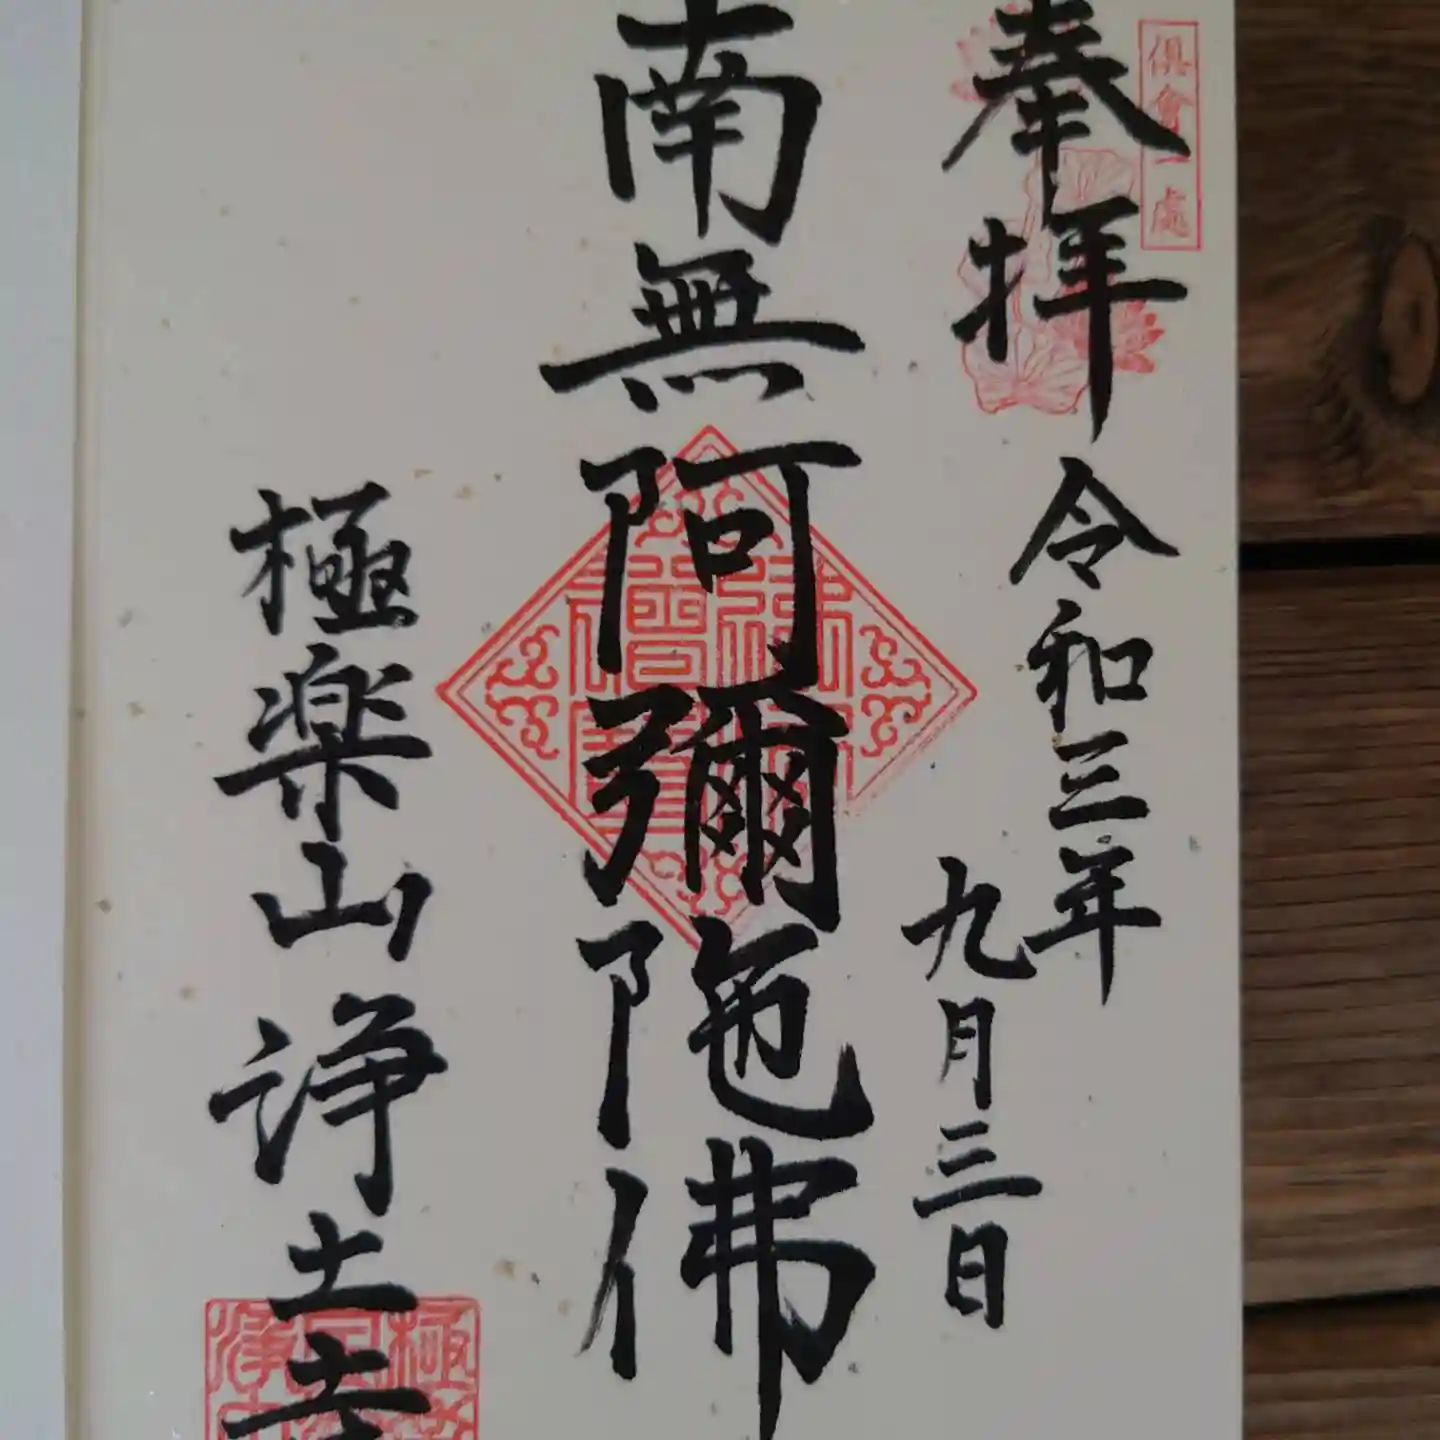 倶會一處
奉拝
令和三年
九月三日
南無阿彌陀佛
極楽山浄土寺